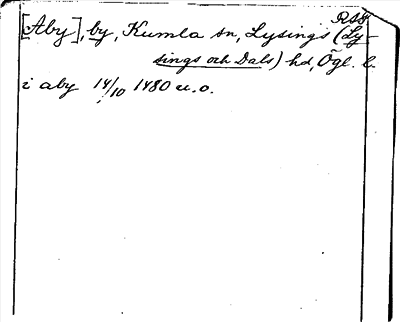 RAÄ
[Åby], by, Kumla sn, Lysings (Ly-
sings och Dals) hd, Ögl. l.
i aby 14/10 1480 u.o.